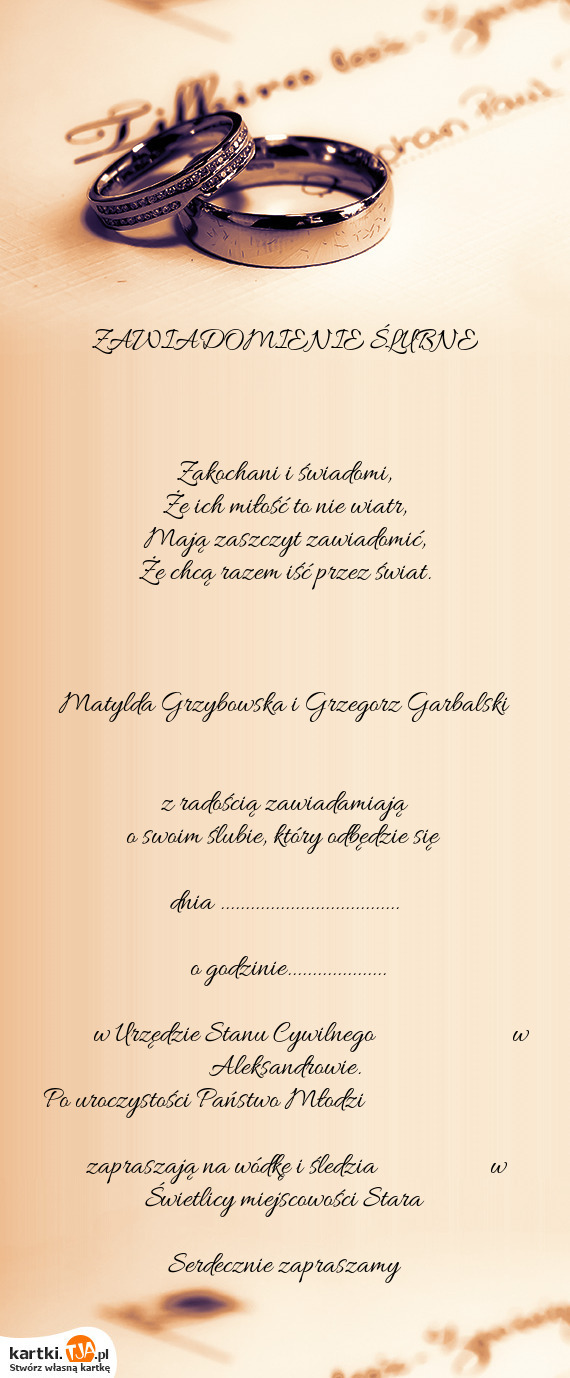 ZAWIADOMIENIE ŚLUBNE
Zakochani i świadomi,
Że ich miłość to nie wiatr,
Mają zaszczyt zawiadomić,
Że chcą razem iść przez świat.
Matylda Grzybowska i Grzegorz Garbalski
z radością zawiadamiają
o swoim ślubie, który odbędzie się
dnia ....................................
o godzinie....................
w Urzędzie Stanu Cywilnego w
Aleksandrowie.
Po uroczystości Państwo Młodzi
zapraszają na wódkę i śledzia w
Świetlicy miejscowości Stara
Serdecznie zapraszamy
kartki.TJA.pl
Stwórz własną kartkę